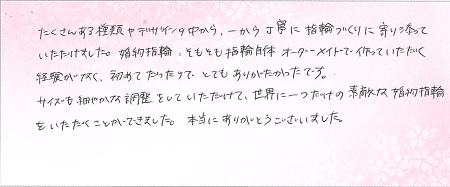 たくさんある種類やデザインの中から、一から丁寧に指輪づくりに寄り添って
いただけました。婚約指輪、そもそも指輪自体オーダーメイドで作っていただく
経験がなく、初めてだったので、とてもありがたかったです。
サイズも細やかな調整をしていただけて、世界に一つだけの素敵な婚約指輪
をいただくことができました。本当にありがとうございました。